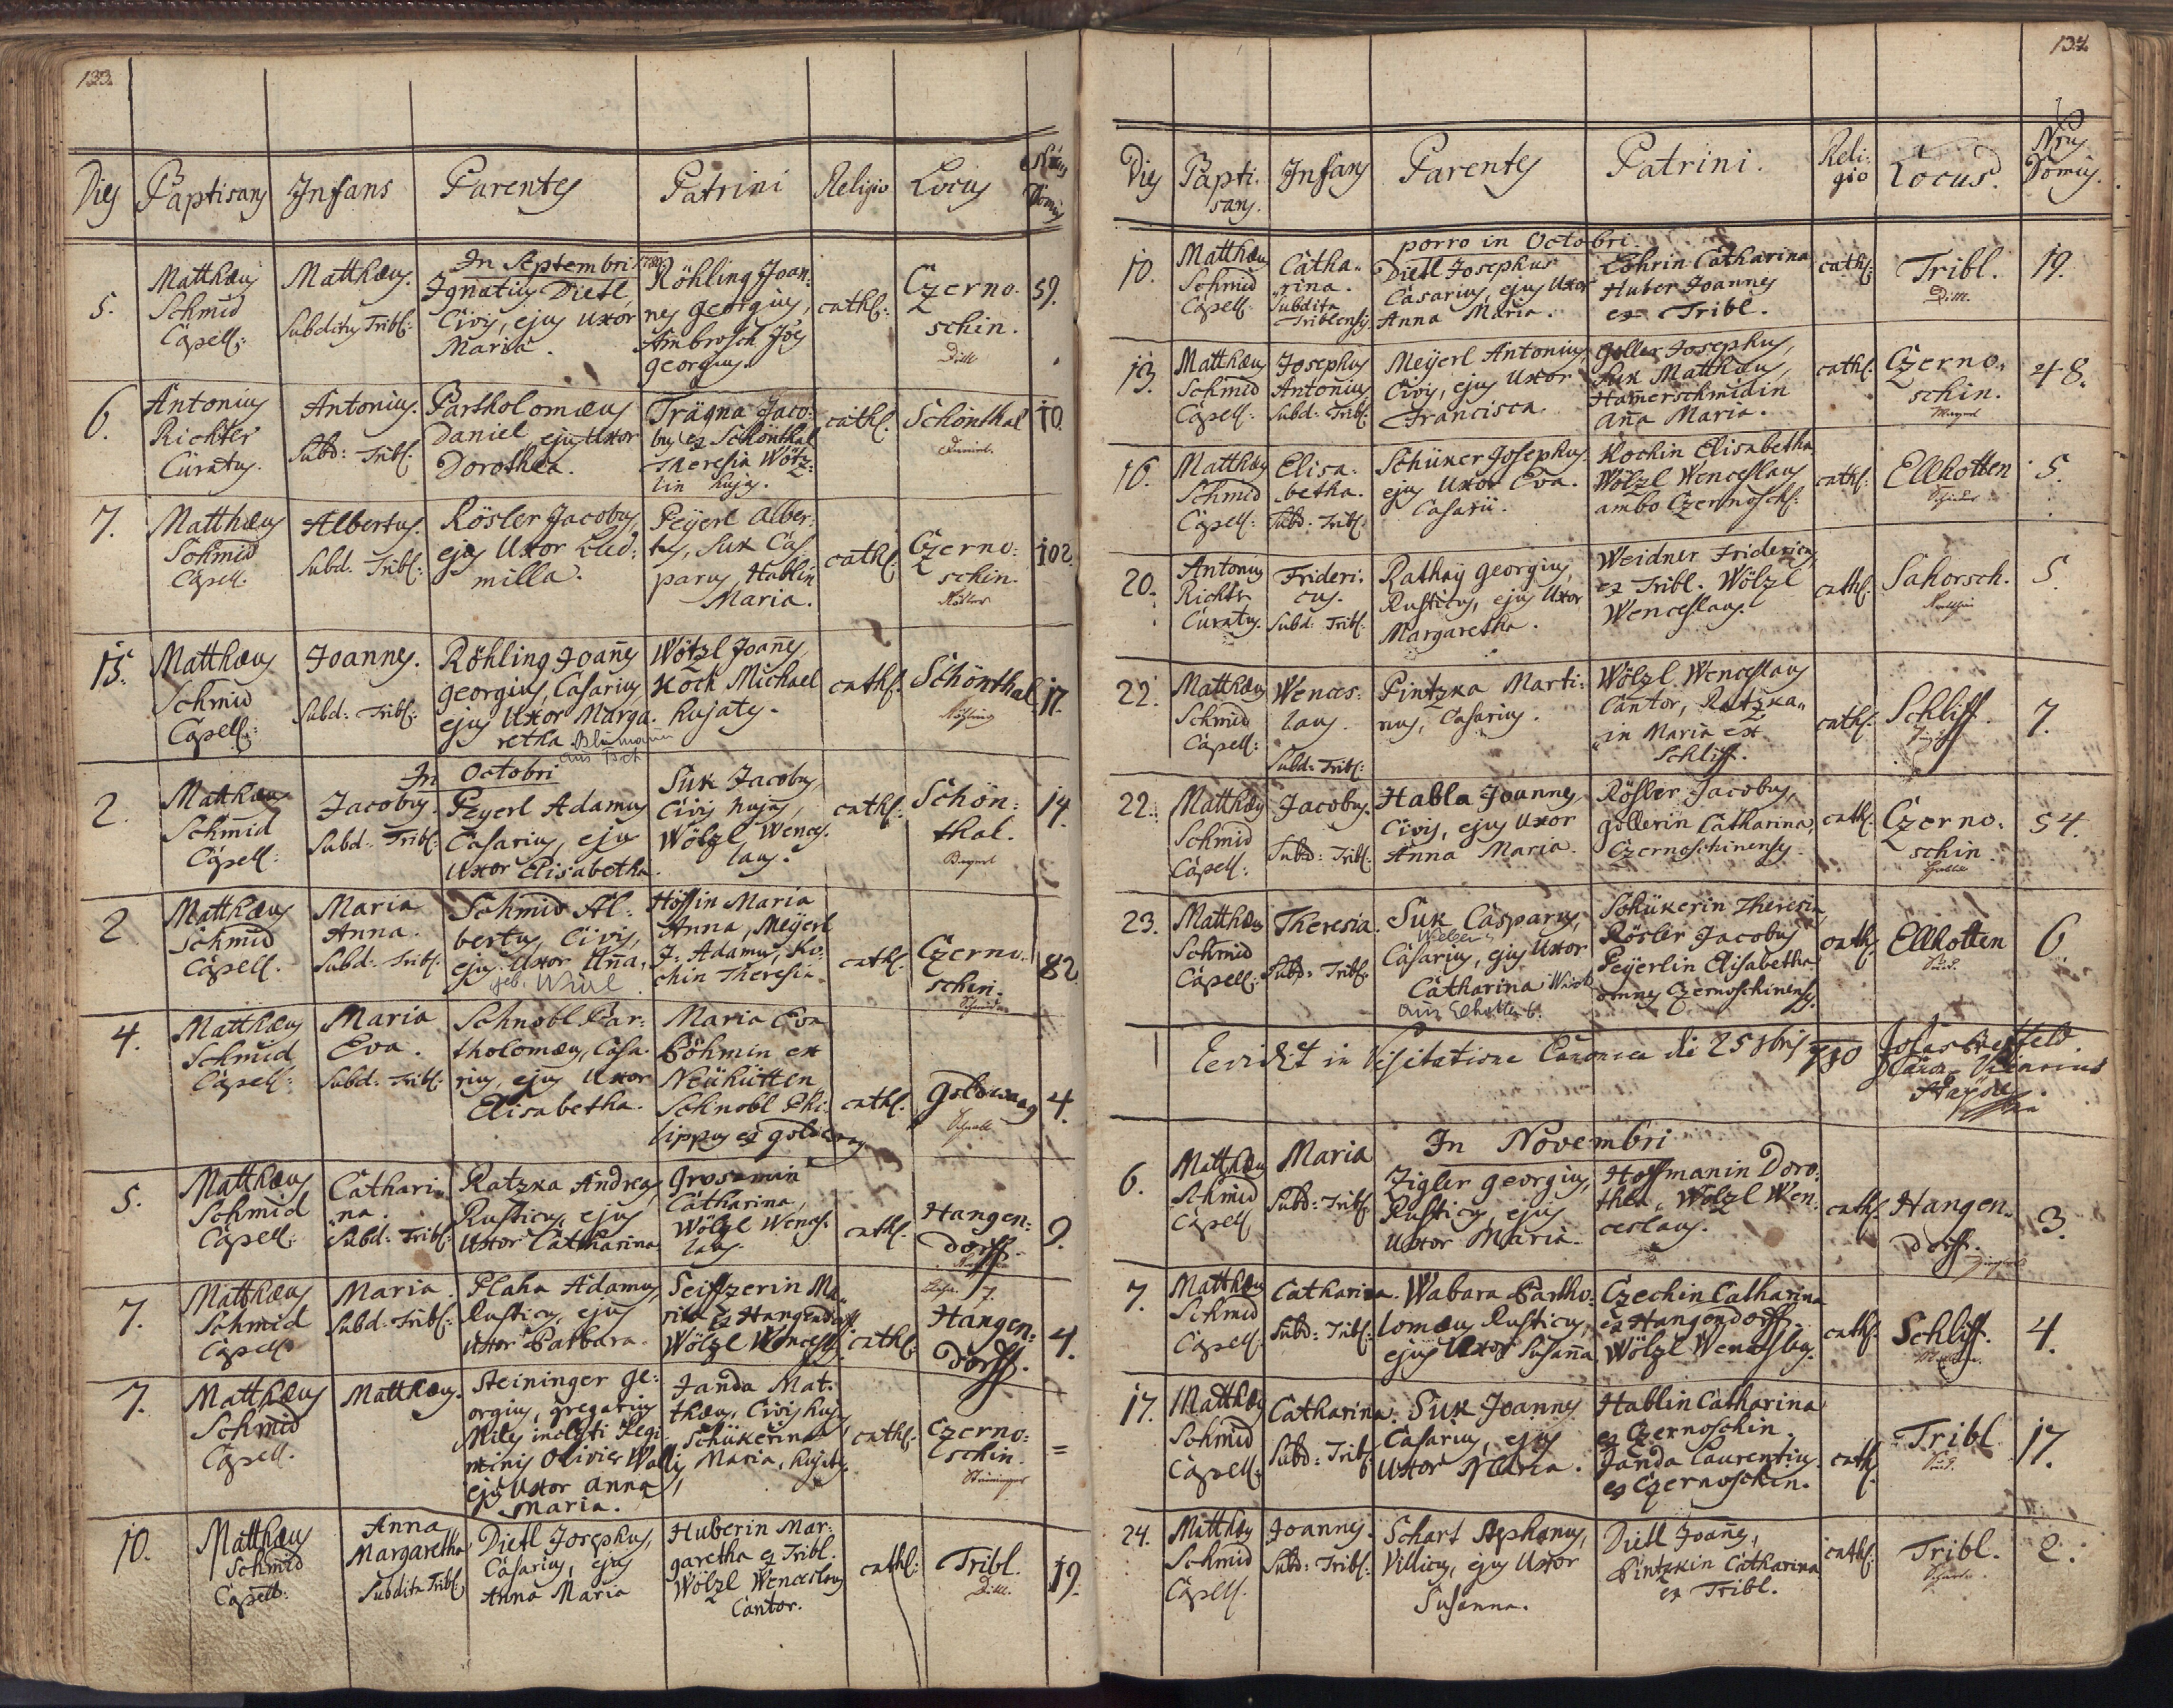 133.
Dies Baptisans Infans Parentes Patrini Religio Locus Nrus Domus
In Septembri 1780
5. Matthæus Schmid Capell: Matthæus. Subditus Tribl: Ignatius Dietl, Civis, ejus Uxor Maria. Röhling Joannes georgius, Ambrosch Joës georgius. cathl: Czernoschin. Dittl 59.
6. Antonius Richter Curatus. Antonius. Subd: Tribl: Bartholomæus Daniel, ejus Uxor Dorothea. Trägna Jacobus ex Schönthal Theresia Wötzlin hujas. cathl. Schönthal Daniel. 10.
7. Matthæus Schmid Capell. Albertus. Subd. Tribl: Rösler Jacobus, ejus Uxor Ludmilla. Peÿerl Albertus, Suk Casparus, Hablin Maria. cathl: Czernoschin. Rösler 102.
15. Matthæus Schmid Capell: Joannes. Subd: Tribl: Röhling Joañes georgius, Casarius ejus Uxor Margaretha Blumann aus Tsch Wötzl Joañes, Koch Michael hujates. cathl. Schönthal. Röhling 17.
In Octobri
2. Matthæus Schmid Capell: Jacobus. Subd: Tribl: Peyerl Adamus Casarius, ejus Uxor Elisabetha. Suk Jacobus, Civis hujas, Wölzl Wenceslaus. cathl: Schönthal. Bayerl 14.
2 Matthæus Schmid Capell. Maria Anna. Subd: Tribl. Schmid Albertus, Civis, ejus Uxor Aña, geb. Höffin Maria Anna, Meÿerl J: Adamus, Kochin Theresia cathl. Czernoschin. Schmid 82
4. Matthæus Schmid Capell: Maria Eva. Subd: Tribl: Schnobl Bartholomæus, Casarius, ejus Uxor Elisabetha. Maria Eva Böhmin ex Neühütten Schnobl Philippus ex goldwag cathl. goldwaag Schnobl 4.
5. Matthæus Schmid Capell: Catharina. Subd: Tribl: Ratzka Andreas, Rusticus, ejus Uxor Catharina Grosmañin Catharina, Wölzl Wenceslaus. cathl. Hangendorff. 9.
7. Matthæus Schmid Capell Maria. Subd: Tribl: Plaha Adamus, Rusticus, ejus Uxor Barbara. Seiffzerin Maria ex Hangendorff. Wölzl Wencesl: cathl: Hangendorff. 4.
7. Matthæus Schmid Capell. Matthæus. Steininger georgius, gregarius Miles inclyti Regiminis Olivier Wallis, ejus Uxor Anna Maria. Janda Matthæus, Civis hujas, Schükerin Maria, hujates. cathl: Czernoschin. Steininger =
10. Matthæus Schmid Capell: Anna Margaretha Subdita Tribl: Dietl Josephus, Casarius, ejus Anna Maria Huberin Margaretha ex Tribl. Wölzl Wenceslaus Cantor. cathl: Tribl. Dittl. 19.
134.
Dies Baptisans. Infans Parentes Patrini. Religio Locus. Nrus Domus.
porro in Octobri.
10. Matthæus Schmid Capell: Catharina. Subdita Triblensis Dietl Josephus Casarius, ejus Uxor Anna Maria. Catharina Huber Joannes ex Tribl. cathl: Tribl. Dittl. 19.
13. Matthæus Schmid Capell: Josephus Antonius Subd: Tribl. Meÿerl Antonius, Civis, ejus Uxor Francisca. goller Josephus, Suk Matthæus, Hamerschmidin aña Maria. cathl. Czernoschin. Mayerl 48.
16. Matthæus Schmid Capell: Elisabetha. Subd: Tribl. Schüker Josephus, ejus Uxor Eva. Casarii. Kochin Elisabetha Wölzl Wenceslaus ambo Czernosch: cathl. Ellhotten 5.
20. Antonius Richter Curatus. Fridericus. Subd: Tribl. Rathaÿ georgius, Rusticus, ejus Uxor Margaretha. Weidner Fridericus, ex Tribl. Wölzl Wenceslaus. cathl. Sahorsch. 5
22. Matthæus Schmid Capell: Wenceslaus. Subd: Tribl: Pintzka Martinus, Casarius. Wölzl Wenceslaus Cantor, Ratzkain Maria ex Schliff. cathl. Schliff. 7.
22. Matthæus Schmid Capell: Jacobus. Subd: Tribl. Habla Joannes, Civis, ejus Uxor Anna Maria. Rösler Jacobus, gollerin Catharina, Czernoschinenses. cathl. Czernoschin. Habla 54.
23. Matthæus Schmid Capell: Theresia. Subd: Tribl. Suk Casparus, Weber Casarius, ejus Uxor Catharina aus Elhotten 6. Schükerin Theresia, Rösler Jacobus Peÿerlin Elisabetha omnes Czernoschinenses. cathl. Ellhotten Suk. 6
Exvidit in Visitatione Canonica die 25 8bris 780
In Novembri
6. Matthæus Schmid Capell Maria Subd: Tribl: Zigler georgius, Rusticus, ejus Uxor Maria. Hoffmanin Dorothea, Wölzl Wenceslaus. cathl. Hangendorff. 3.
7. Matthæus Schmid Capell. Catharina. Subd: Tribl: Wabara Bartholomæus Rusticus, ejus Uxor Susaña Czechin Catharina ex Hangendorff. Wölzl Wenceslaus. cathl. Schliff. 4.
17. Matthæus Schmid Capell: Catharina. Subd: Tribl Suk Joannes Casarius, ejus Uxor Maria. Hablin Catharina ex Czernoschin. Janda Laurentius ex Czernoschin. cathl. Tribl Suk. 17.
24. Matthæus Schmid Capell. Joannes. Subd: Tribl: Schart Stephanus, Villicus, ejus Uxor Susanna. Dietl Joañes, Pintzkin Catharina ex Tribl. cathl: Tribl. 2.